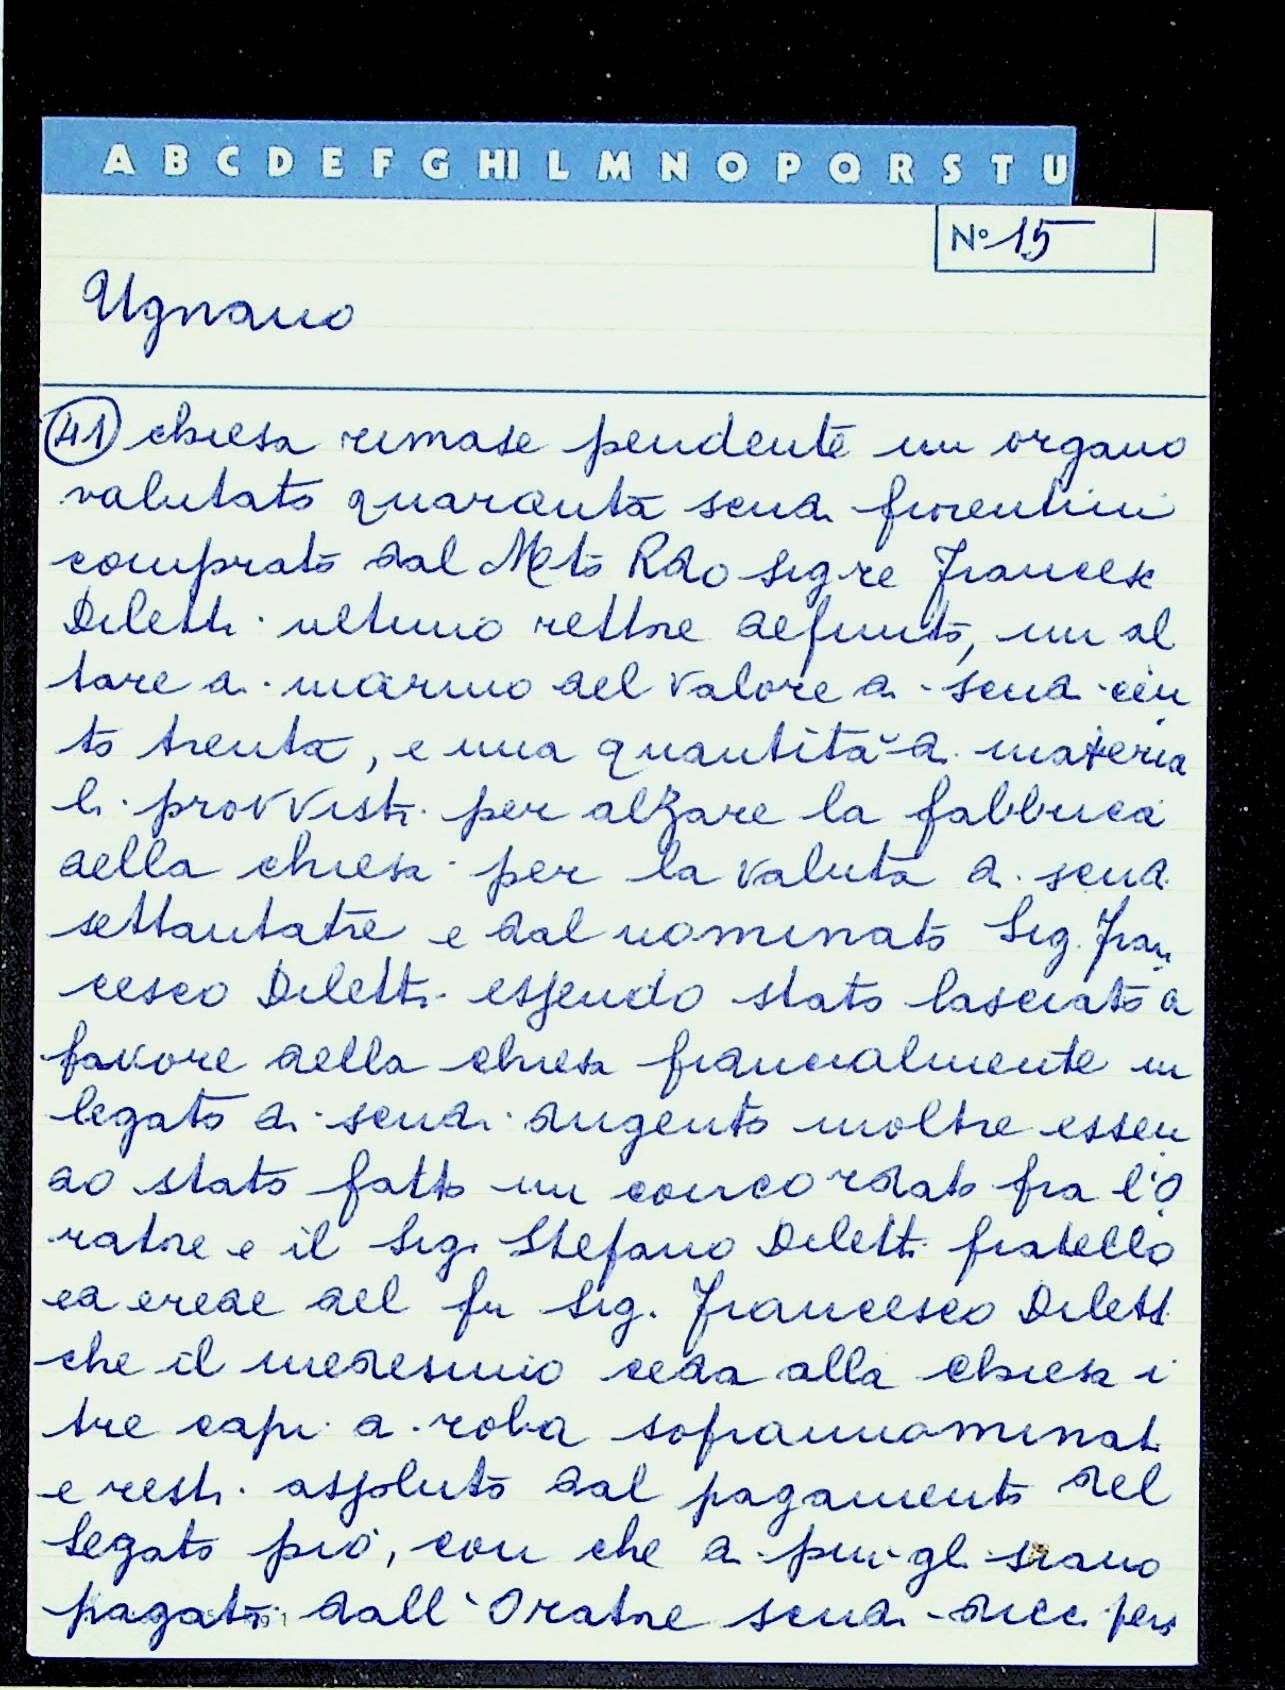 A B C D E F G HI L M N O P Q R S T U
N° 15
Ugnano
41 chiesa rimase pendente un organo
valutato quaranta scudi fiorentini
comprato dal Mto Rdo Sigre Francesc
Diletti ultimo rettore defunto, un al
tare di marmo del valore di scudi cen
to trenta, e una quantità di materia
li provvisti per alzare la fabbrica
della chiesa per la valuta di scudi
settantatre e dal nominato Sig. Fran
cesco Diletti essendo stato lasciato a
favore della chiesa
legato di scudi dugento inoltre essen
do stato fatto un concordato fra l'O
ratore e il Sig. Stefano Diletti fratello
ed erede del fu Sig. Francesco Diletti
che il medesimo ceda alla Chiesa i
tre capi di roba soprannominati
e resti assoluto dal pagamento del
Legato pio, con che di più gli siano
pagati dall'Oratore scudi dieci per